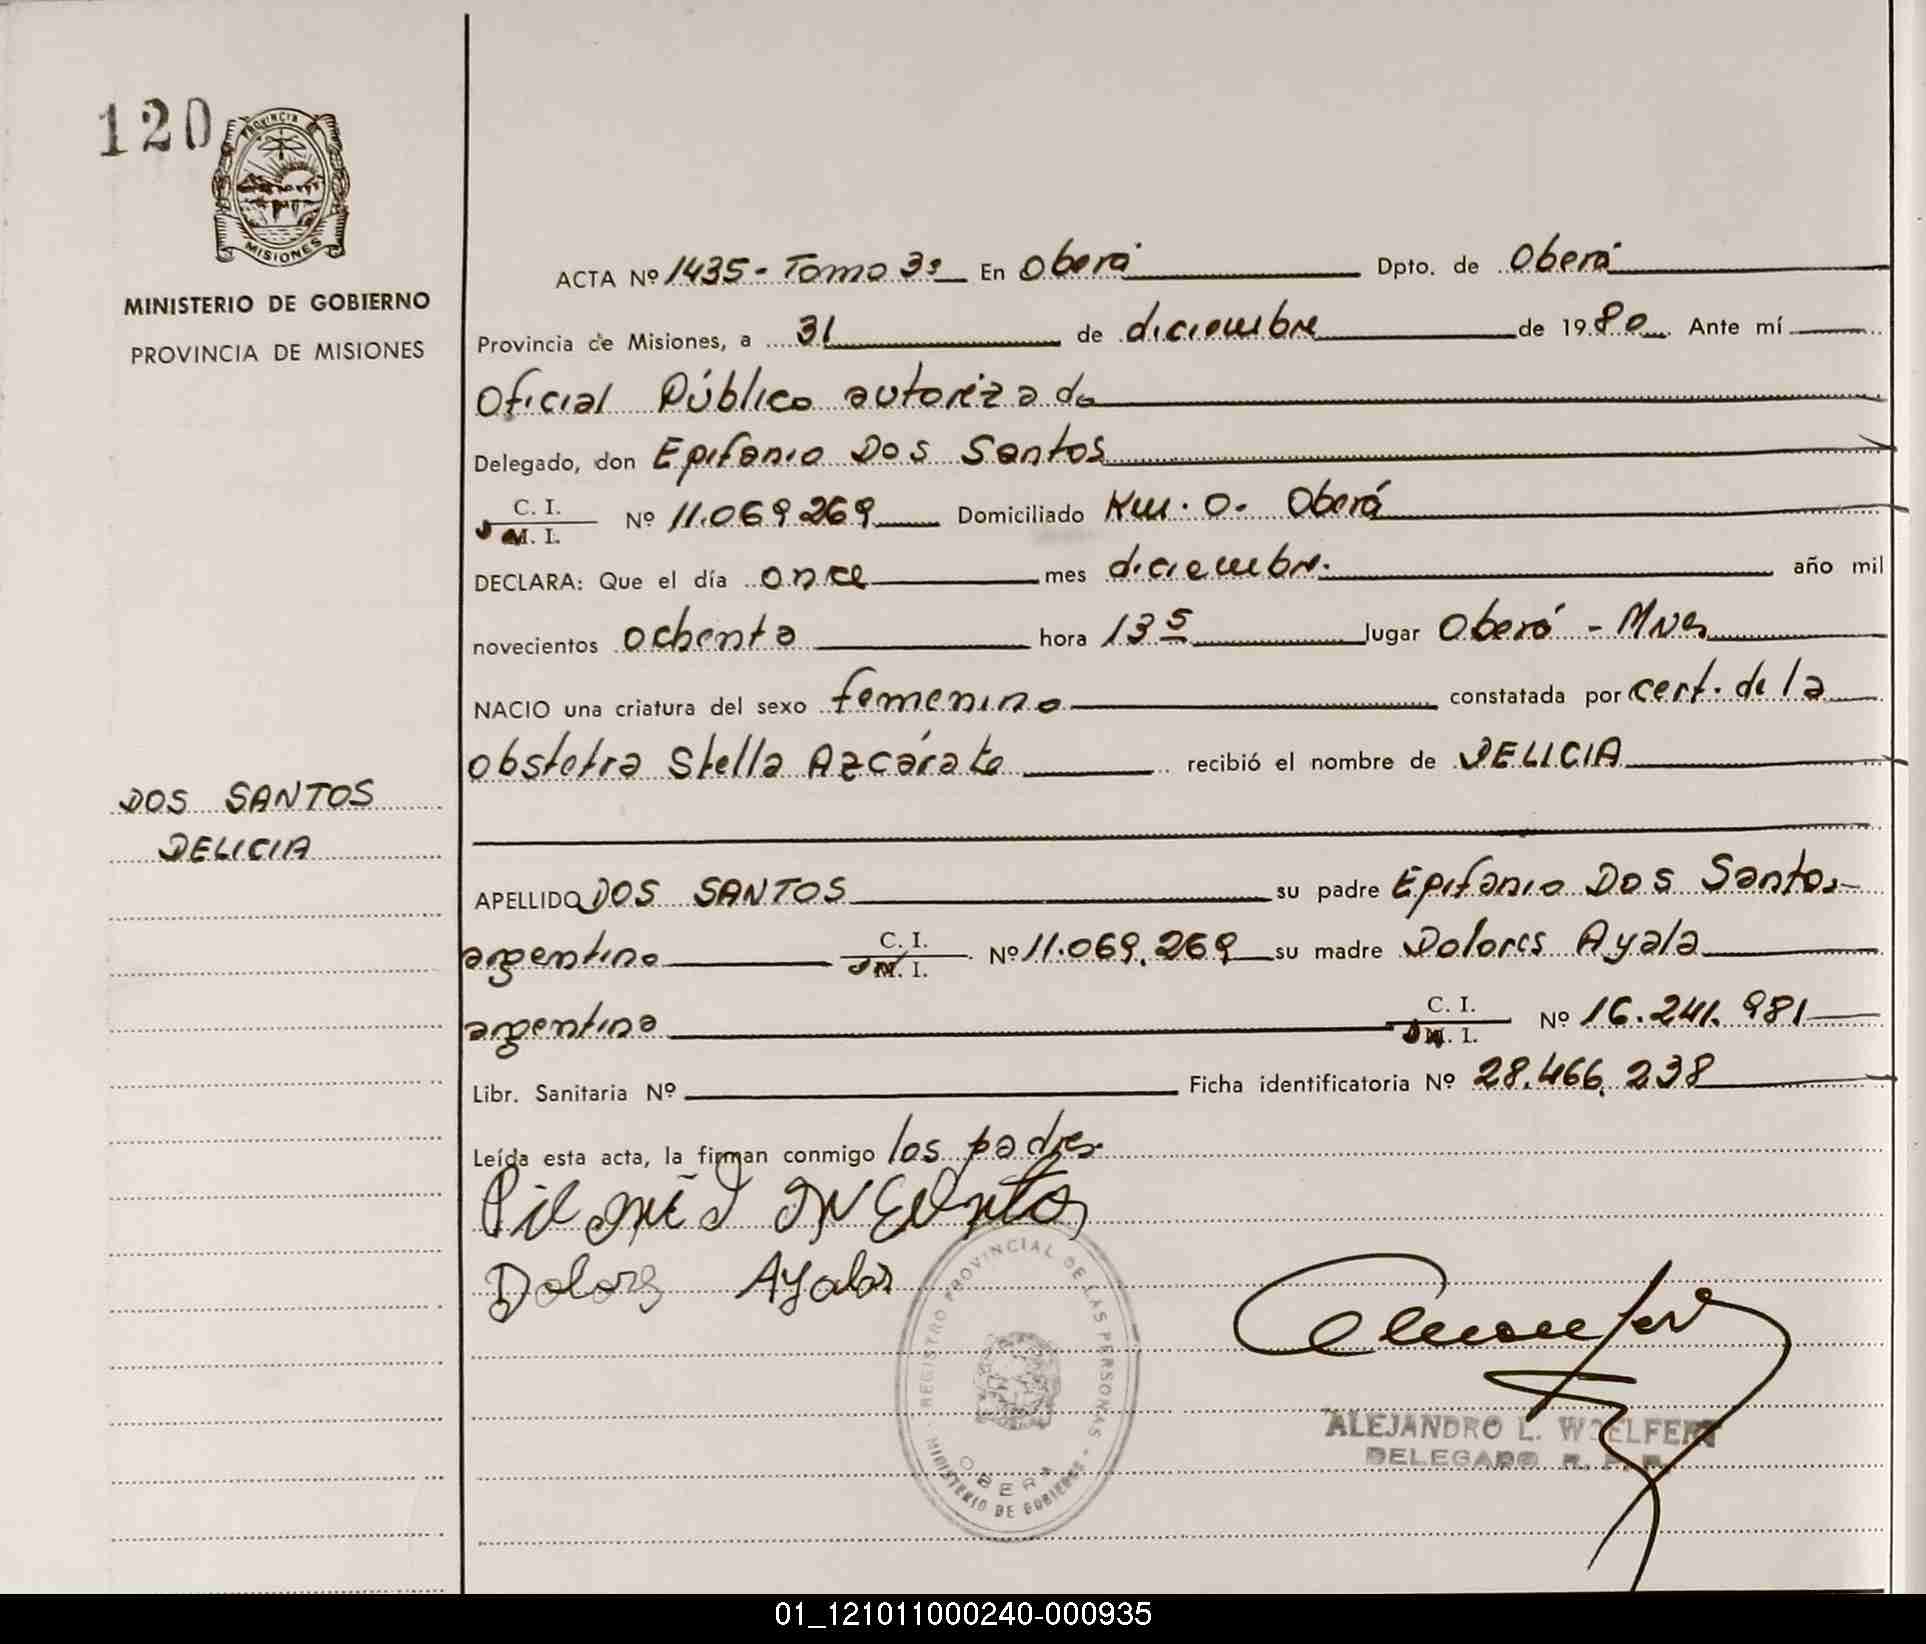 120
PROVINCIA DE
MISIONES
MINISTERIO DE GOBIERNO
PROVINCIA DE MISIONES
DOS SANTOS
DELICIA
ACTA Nº 1435 - Tomo 3º En Oberá Dpto. de Oberá
Provincia de Misiones, a 31 de diciembre de 1980 Ante mí
Oficial Público autorizado
Delegado, don Epifanio Dos Santos
C. I.
M. I. Nº 11.069.269 Domiciliado Km. 0 - Oberá
DECLARA: Que el día once mes diciembre año mil
novecientos ochenta hora 13 5 lugar Oberá - Mnes
NACIO una criatura del sexo femenino constatada por cert. de la
obstetra Stella Azcárate recibió el nombre de DELICIA
APELLIDO DOS SANTOS su padre Epifanio Dos Santos
argentino C. I. M. I. Nº 11.069.269 su madre Dolores Ayala
argentina C. I. M. I. Nº 16.241.981
Libr. Sanitaria Nº Ficha identificatoria Nº 28.466.238
Leída esta acta, la firman conmigo los padres
Dolors Ayala
REGISTRO PROVINCIAL DE LAS PERSONAS
OBERA
MINISTERIO DE GOBIERNO
ALEJANDRO L. WOELFERT
DELEGADO R. P. P.
01_121011000240-000935